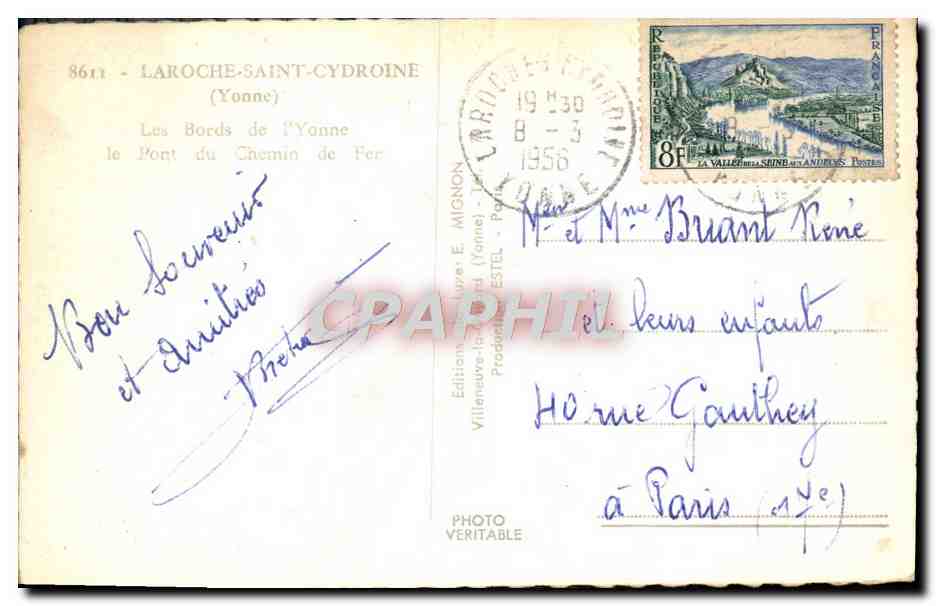 8611 - LAROCHE-SAINT-CYDROINE
(Yonne)
Les Bords de l'Yonne
le Pont du Chemin de Fer
Bon Souvenir
et Amitiés
Editions Luxe E. MIGNON
Villeneuve-la (Yonne)
Production ESTEL - Paris
PHOTO
VERITABLE
LAROCHE
19 H 30
8 - 3
1956
YONNE
REPUBLIQUE FRANCAISE
8F
LA VALLÉE DE LA SEINE AUX ANDELYS POSTES
et Mme Briant René
et leurs enfants
40 rue Gauthey
à Paris (17e)
CPAPHIL